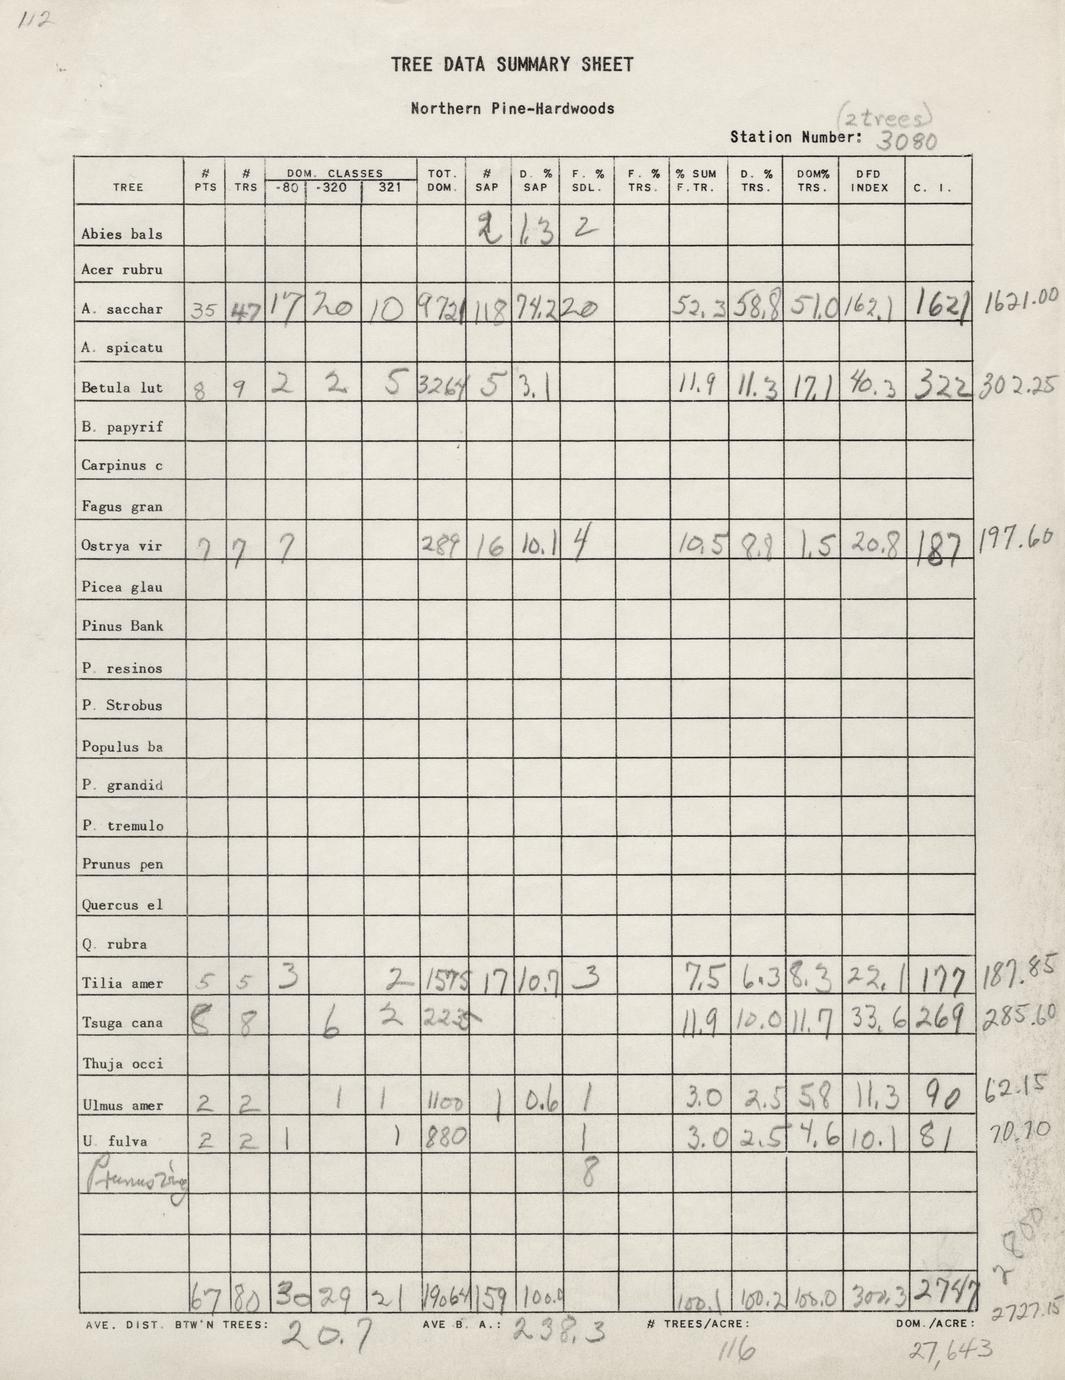 112
TREE DATA SUMMARY SHEET
Northern Pine-Hardwoods
(2 trees)
Station Number: 3080
TREE # PTS # TRS DOM. CLASSES -80 -320 321 TOT. DOM. # SAP D. % SAP F. % SDL. F. % TRS. % SUM F.TR. D. % TRS. DOM% TRS. DFD INDEX C. I.
Abies bals 2 1.3 2
Acer rubru
A. sacchar 35 47 17 20 10 9721 118 74.2 20 52.3 58.8 51.0 162.1 1621 1621.00
A. spicatu
Betula lut 8 9 2 2 5 3264 5 3.1 11.9 11.3 17.1 40.3 322 302.25
B. papyrif
Carpinus c
Fagus gran
Ostrya vir 7 7 7 289 16 10.1 4 10.5 8.8 1.5 20.8 187 197.60
Picea glau
Pinus Bank
P. resinos
P. Strobus
Populus ba
P. grandid
P. tremulo
Prunus pen
Quercus el
Q. rubra
Tilia amer 5 5 3 2 1575 17 10.7 3 7.5 6.3 8.3 22.1 177 187.85
Tsuga cana 8 8 6 2 2235 11.9 10.0 11.7 33.6 269 285.60
Thuja occi
Ulmus amer 2 2 1 1 1100 1 0.6 1 3.0 2.5 5.8 11.3 90 62.15
U. fulva 2 2 1 1 880 1 3.0 2.5 4.6 10.1 81 70.70
Prunus 8
67 80 30 29 21 19064 159 100.0 100.1 100.2 100.0 300.3 2747 2727.15
AVE. DIST. BTW'N TREES: 20.7 AVE B. A.: 238.3 # TREES/ACRE: 116 DOM./ACRE: 27,643